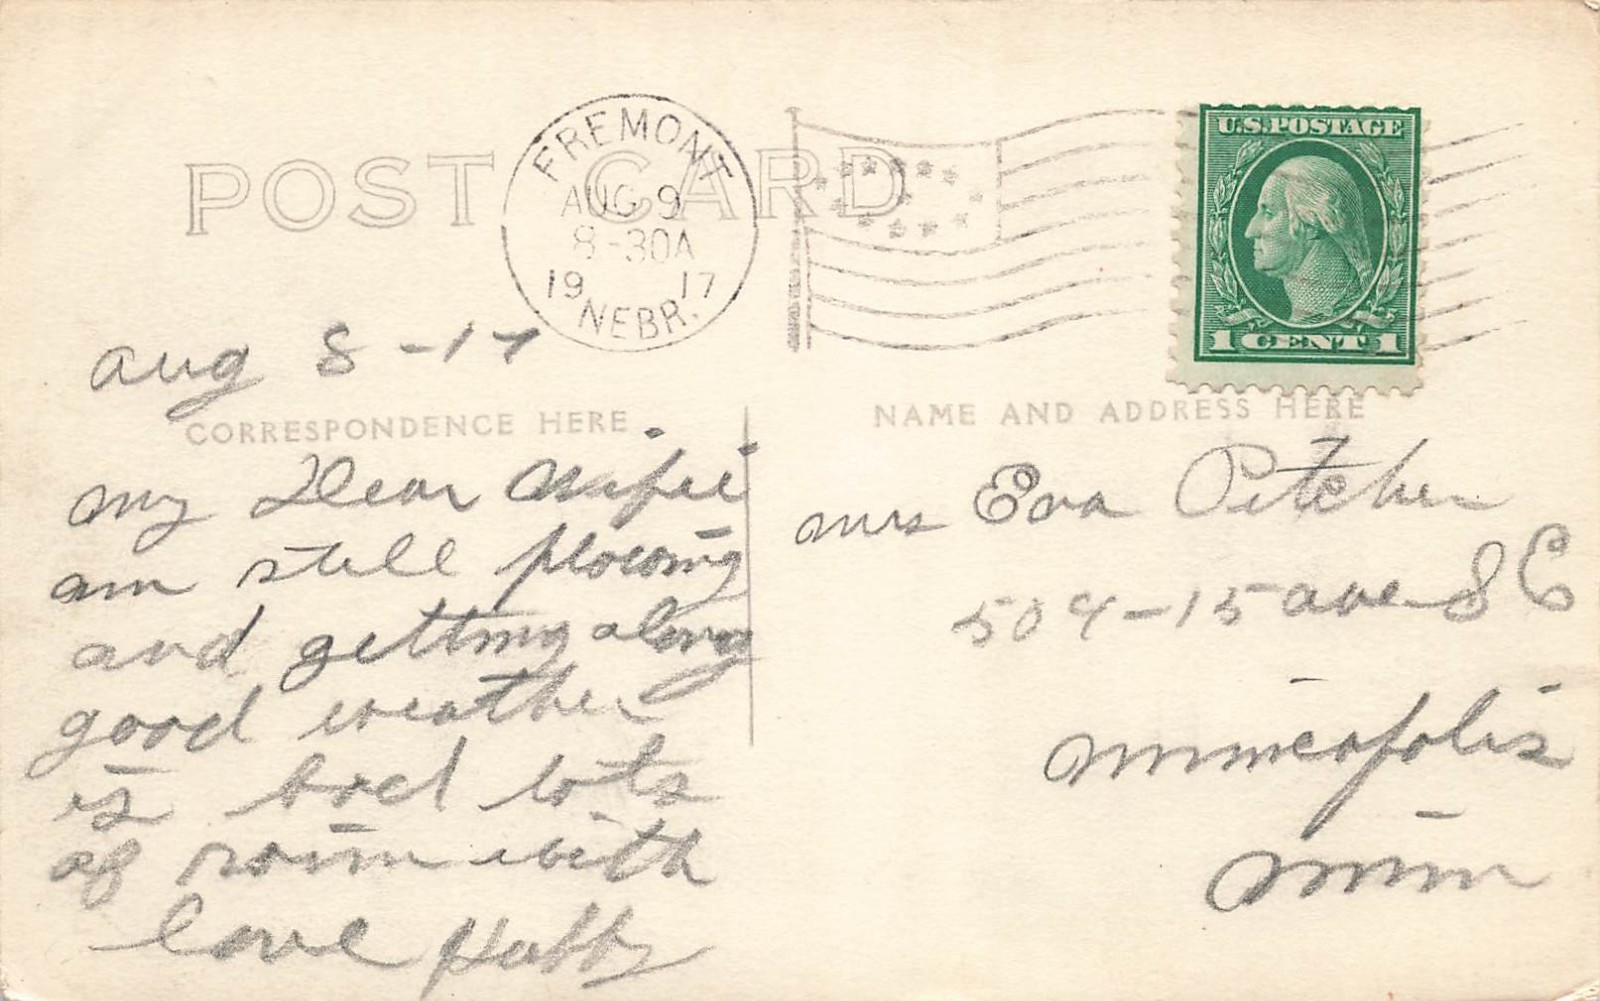 POST CARD
FREMONT
AUG 9
8-30A
19 17
NEBR.
U.S. POSTAGE
1 CENT 1
Aug 8 - 17
CORRESPONDENCE HERE
NAME AND ADDRESS HERE
My Dear Wifie
am still plowing
and getting along
good weather
is bad lots
of with
love Hubby
Mrs Eva Pitcher
504 - 15 ave S E
Minneapolis
Minn